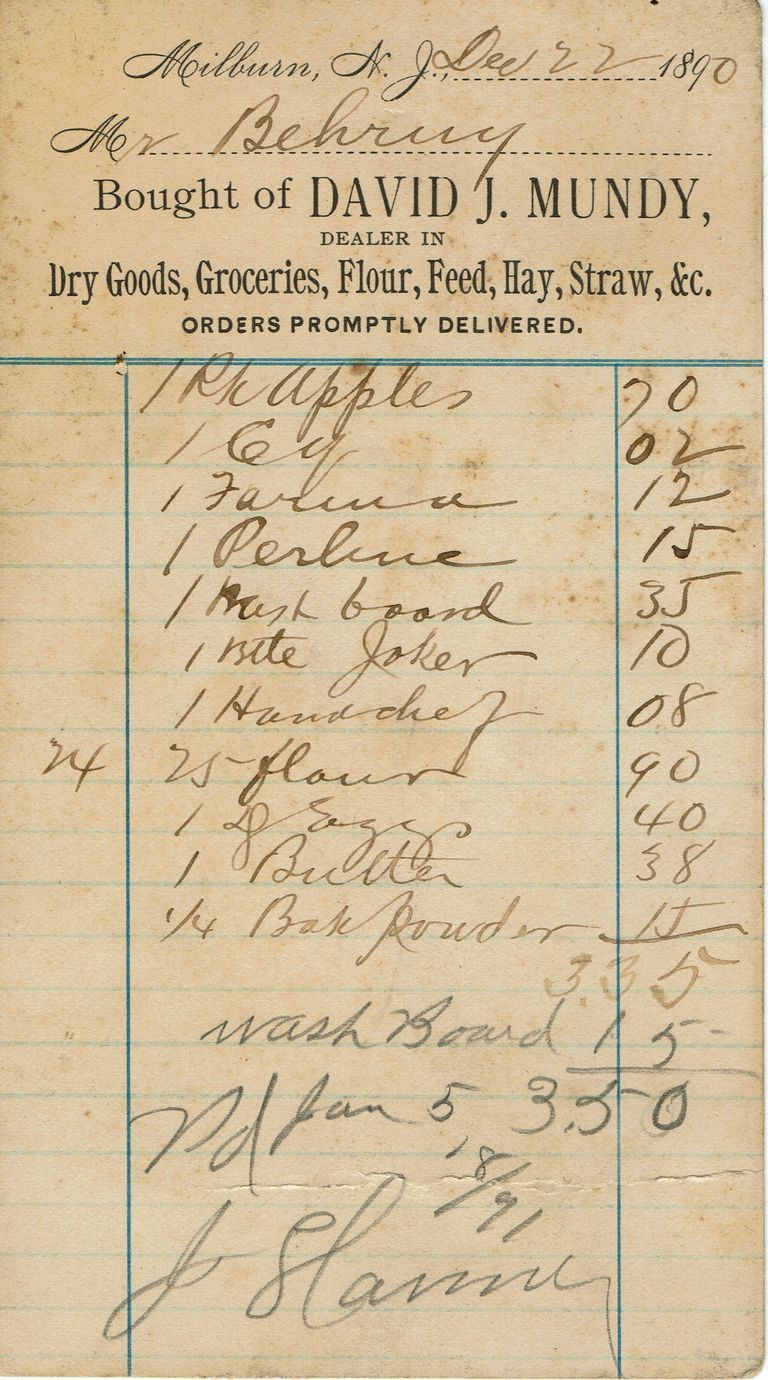 Milburn, N. J., Dec 22 1890
Mr
Bought of DAVID J. MUNDY,
DEALER IN
Dry Goods, Groceries, Flour, Feed, Hay, Straw, &c.
ORDERS PROMPTLY DELIVERED.
1 Pk Apples 70
1 02
1 Farina 12
1 Perline 15
1 Wash board 35
1 Joker 10
1 Handchef 08
24 25 flour 90
1 Eggs 40
1 Butter 38
1/4 Bak powder 15
3.35
wash Board 15
Pd Jan 5, 3.50
18/91
J